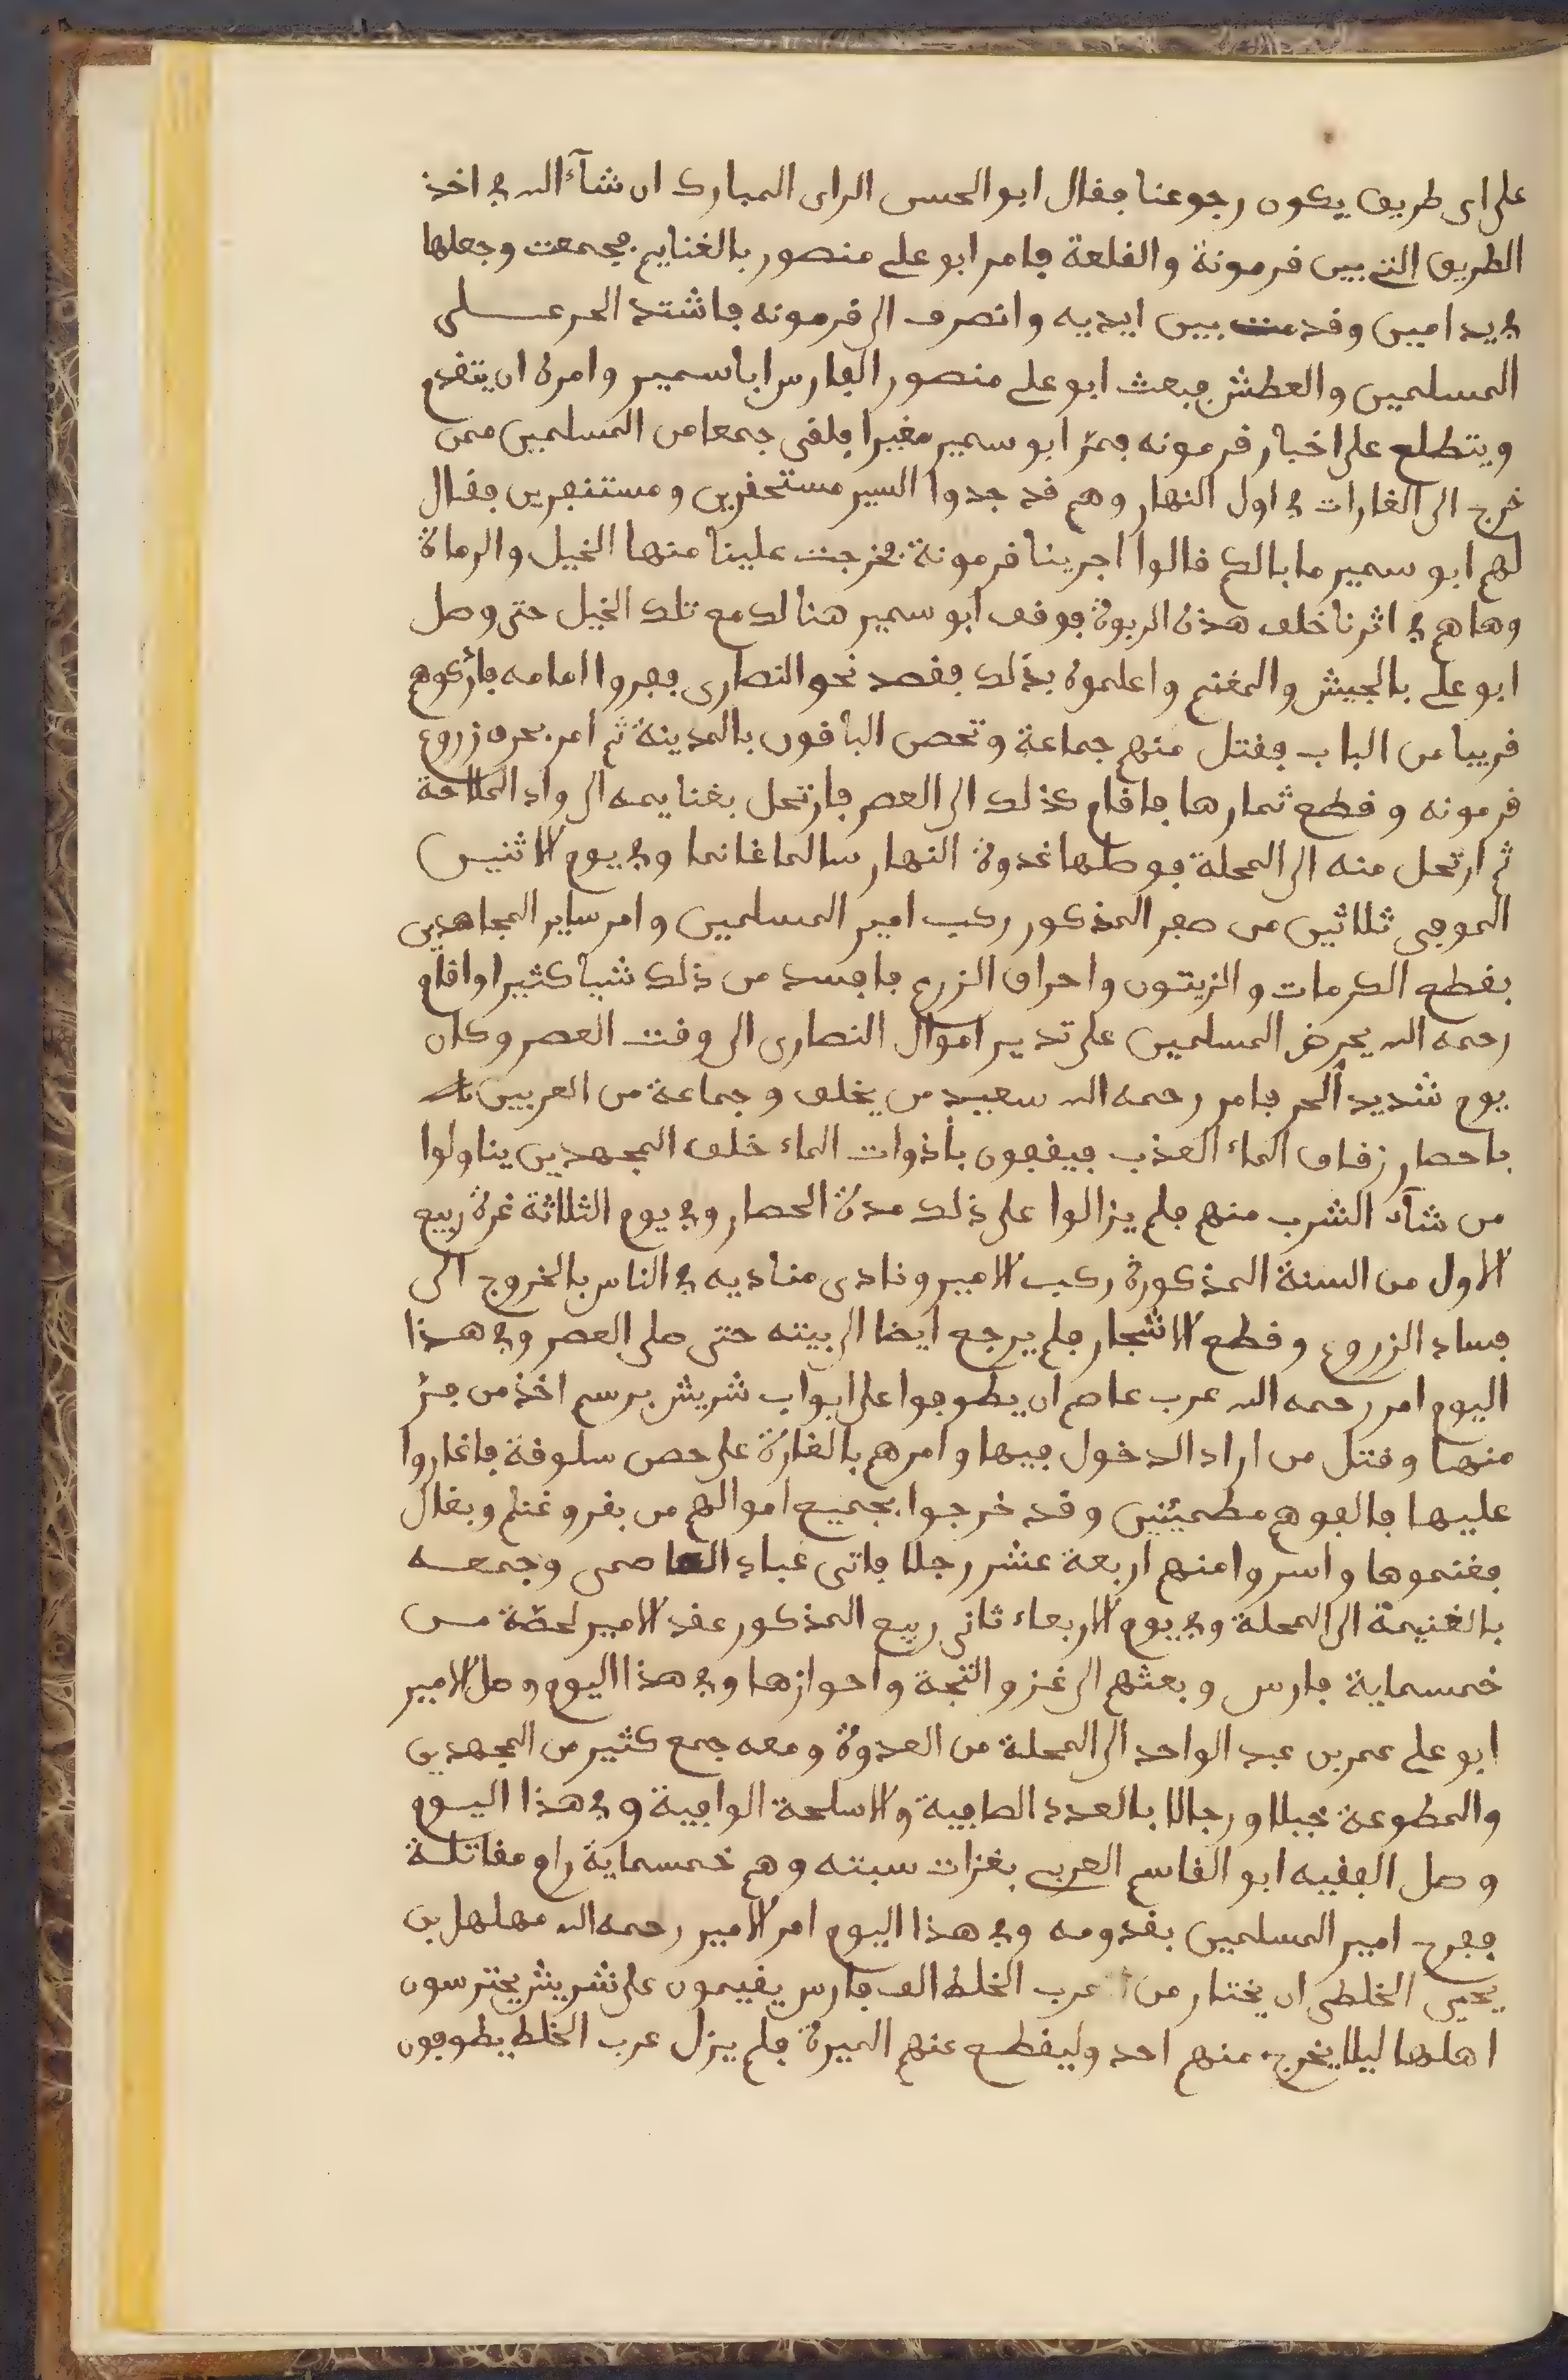 على اى طريق يكون رجوعنا فقال ابو الحسن الراى المبارك ان شآء الله في اخذ
الطريق التي بين قرمونة والقلعة فامر ابو علي منصور بالغنايم فجمعت وجعلها
في يد امين وقدمت بين ايديه وانصرف الى قرمونه فاشتد الحر على
المسلمين والعطش فبعث ابو علي منصور الفارس اباسمير وامره ان يتقدم
ويتطلع على اخبار قرمونه فمر ابو سمير مغيرا فلقى جمعا من المسلمين ممن
خرج الى الغارات في اول النهار وهم قد جدوا السير مستحفرين ومستنفرين فقال
لهم ابو سمير ما بالكم قالوا اجرينا قرمونة فخرجت علينا منها الخيل والرماة
وهاهم في اثرنا خلف هذه الربوة فوقف ابو سمير هنالك مع تلك الخيل حتى وصل
ابو علي بالجيش والمغنم واعلموه بذلك فقصد نحو النصارى ففروا امامه فادركوهم
قريبا من الباب فقتل منهم جماعة وتحصن الباقون بالمدينة ثم امر بحرق زروع
قرمونه وقطع ثمارها فاقام كذلك الى العصر فارتحل بغنايمه الى واد الملاحة
ثم ارتحل منه الى المحلة فوصلها غدوة النهار سالما غانما وفي يوم الاثنين
الموفى ثلاثين من صفر المذكور ركب امير المسلمين وامر ساير المجاهدين
بقطع الكرمات والزيتون واحراق الزرع فافسد من ذلك شيا كثيرا واقام
رحمه الله يحرض المسلمين على تدبير اموال النصارى الى وقت العصر وكان
يوم شديد الحر فامر رحمه الله سعيد من يخلف وجماعة من العربين
باحصار زقاق الماء العذب فيقفون بأذوات الماء خلف المجهدين يناولوا
من شآء الشرب منهم فلم يزالوا على ذلك مدة الحصار وفي يوم الثلاثة غرة ربيع
الاول من السنة المذكورة ركب الامير ونادى مناديه في الناس بالخروج الى
فساد الزروع وقطع الاشجار فلم يرجع ايضا الى بيته حتى صلى العصر وفي هذا
اليوم امر رحمه الله عرب عاصم ان يطوفوا على ابواب شريش برسم اخذ من فر
منها وقتل من اراد الدخول فيها وامرهم بالغارة على حصن سلوقة فاغاروا
عليها فالفوهم مطمئنين وقد خرجوا بجميع اموالهم من بقر وغنم وبغال
فغنموها واسروا منهم اربعة عشر رجلا فاتى عياد العاصمى وجمعه
بالغنيمة الى المحلة وفي يوم الاربعاء ثانى ربيع المذكور عقد الامير لحصة من
خمسماية فارس وبعثهم الى غزو انتجة واحوازها وفي هذا اليوم وصل الامير
ابو علي عمر بن عبد الواحد الى المحلة من العدوة ومعه جمع كثير من المجهدين
والمطوعة خيلا ورجالا بالعدد الصافية والاسلحة الوافية وفي هذا اليوم
وصل الفقيه ابو القاسم العربي بغزات سبته وهم خمسماية رام مقاتلة
ففرح امير المسلمين بقدومه وفي هذا اليوم امر الامير رحمه الله مهلهل بن
يحيى الخلطى ان يختار من عرب الخلط الف فارس يقيمون على شريش يحترسون
اهلها ليلا يخرج منهم احد وليقطع عنهم الميرة فلم يزل عرب الخلط يطوفون